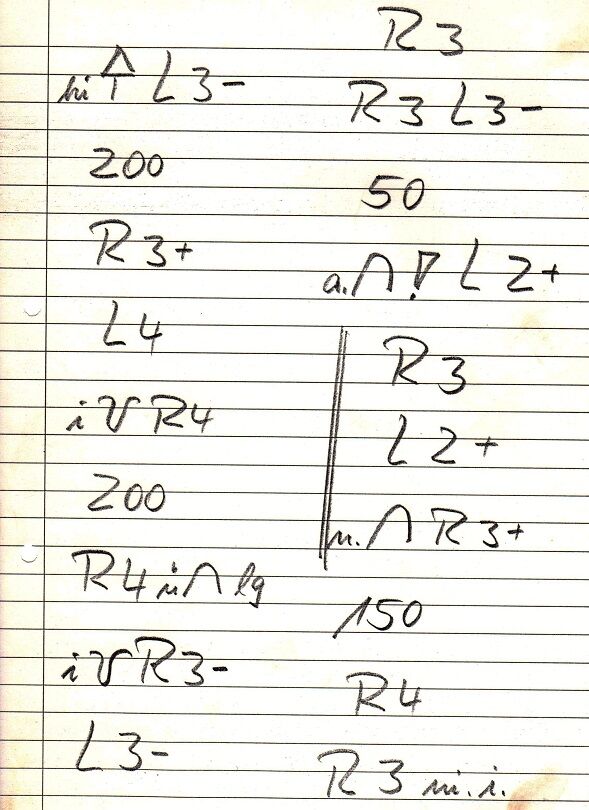 hi L3-
200
R3+
L4
i V R4
200
R4 ü ∩ lg
i V R3-
L3-
R3
R3 L3-
50
a. ∩ L2+
R3
L2+
n. ∩ R3+
150
R4
R3